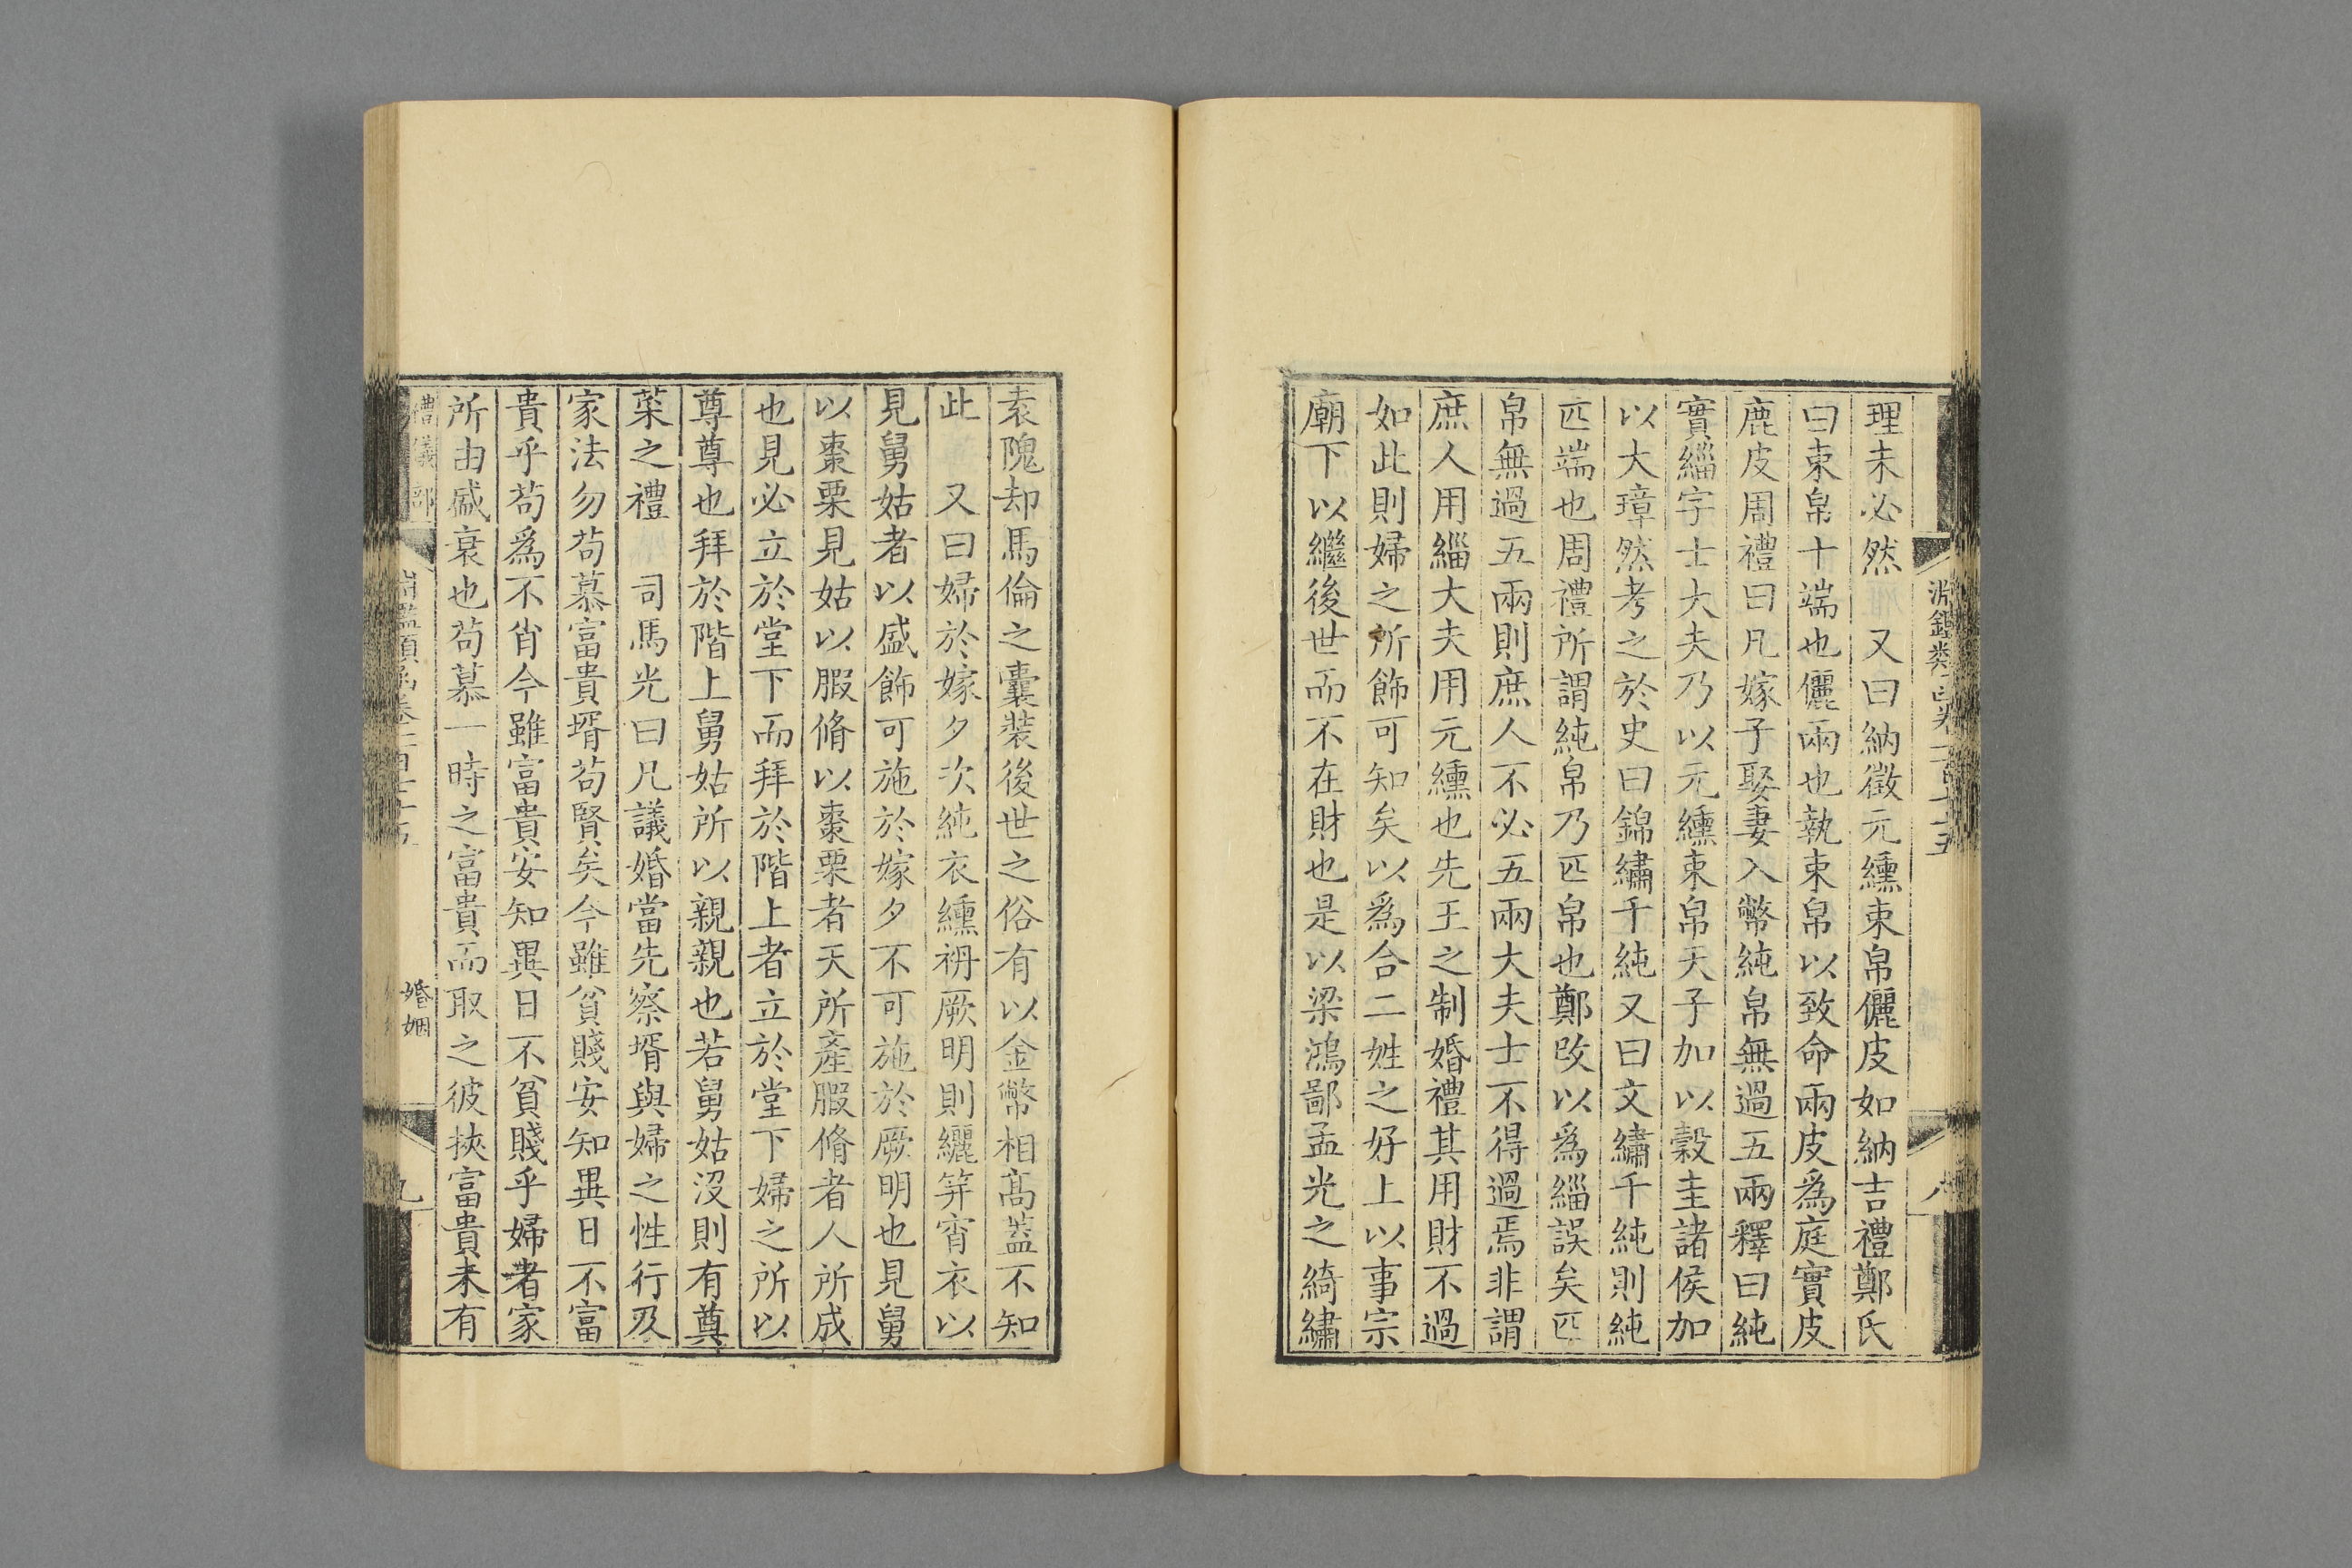 理未必然　又曰納徵元纁束帛儷皮如納吉禮鄭氏
曰束帛十端也儷兩也執束帛以致命兩皮爲庭實皮
鹿皮周禮曰凡嫁子娶妻入幣純帛無過五兩釋曰純
實緇字士大夫乃以元纁束帛天子加以穀圭諸侯加
以大璋然考之於史曰錦繡千純又曰文繡千純則純
匹端也周禮所謂純帛乃匹帛也鄭改以爲緇誤矣匹
帛無過五兩則庶人不必五兩大夫士不得過焉非謂
庶人用緇大夫用元纁也先王之制婚禮其用財不過
如此則婦之所飾可知矣以爲合二姓之好上以事宗
廟下以繼後世而不在財也是以梁鴻鄙孟光之綺繡
袁隗却馬倫之囊裝後世之俗有以金幣相高蓋不知
此　又曰婦於嫁夕次純衣纁袡厥明則纚笄宵衣以
見舅姑者以盛飾可施於嫁夕不可施於厥明也見舅
以棗栗見姑以腶脩以棗栗者天所產腶脩者人所成
也見必立於堂下而拜於階上者立於堂下婦之所以
尊尊也拜於階上舅姑所以親親也若舅姑沒則有奠
菜之禮　司馬光曰凡議婚當先察壻與婦之性行及
家法勿苟慕富貴壻苟賢矣今雖貧賤安知異日不富
貴乎苟爲不肖今雖富貴安知異日不貧賤乎婦者家
所由盛衰也苟慕一時之富貴而取之彼挾富貴未有
婚姻